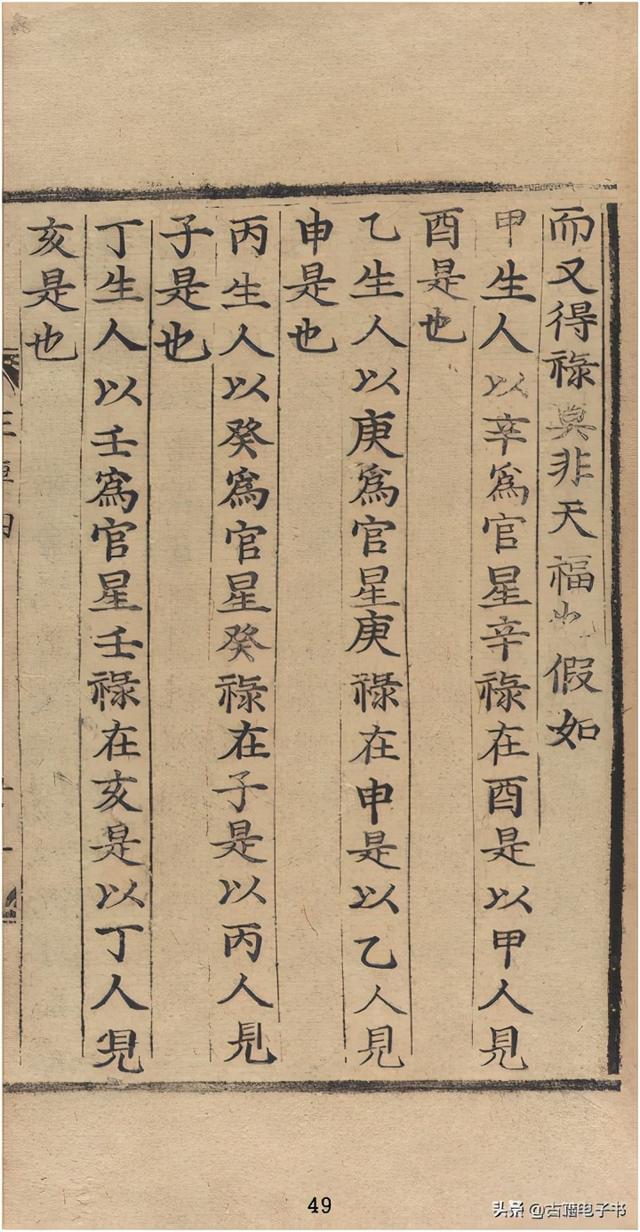 而又得祿莫非天福也假如
甲生人以辛爲官星辛祿在酉是以甲人見
酉是也
乙生人以庚爲官星庚祿在申是以乙人見
申是也
丙生人以癸爲官星癸祿在子是以丙人見
子是也
丁生人以壬爲官星壬祿在亥是以丁人見
亥是也
49
头条@古籍电子书